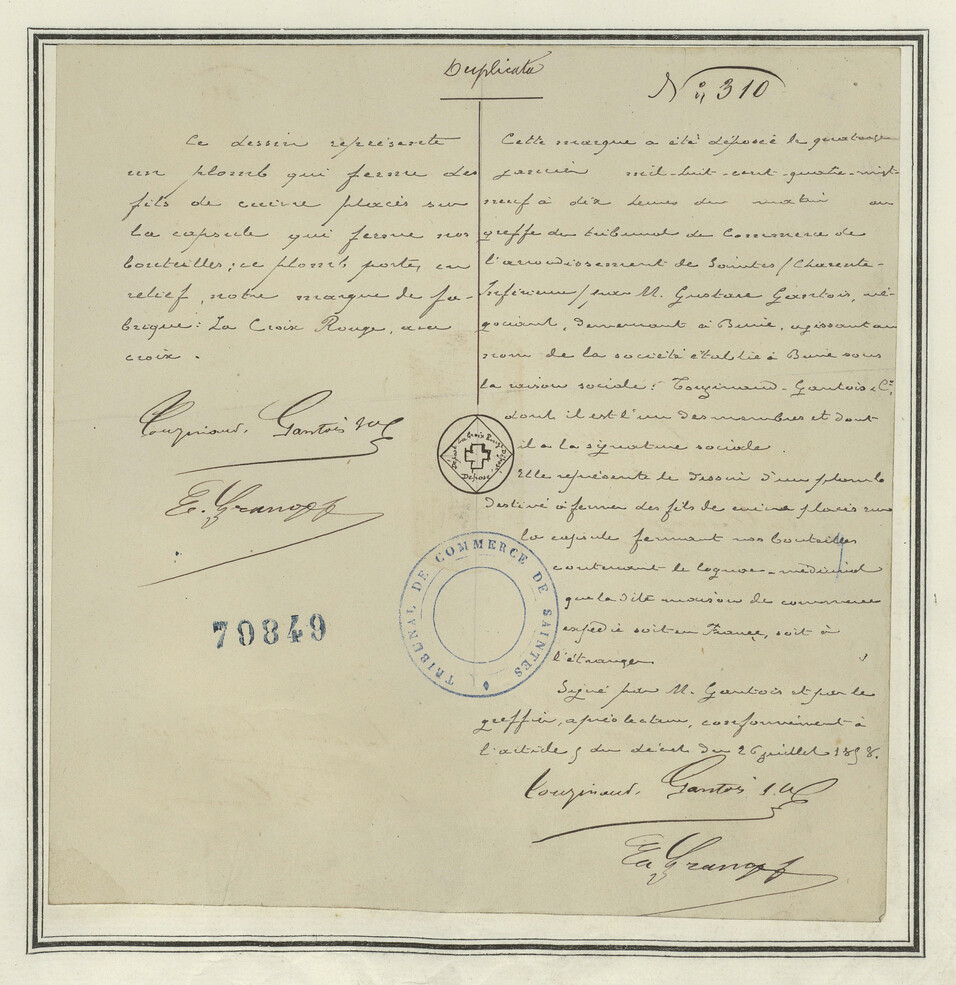 Duplicata
N° 310
Ce dessin représente
un plomb qui ferme des
fils de cuivre placés sur
la capsule qui ferme nos
bouteilles; ce plomb porte, en
relief, notre marque de fa-
brique: La Croix Rouge, une
croix.
Touzinaud, Gantois & Cie
E. Granoff
Cette marque a été déposée le quatorze
janvier mil-huit-cent-quatre-vingt-
neuf à dix heures du matin au
greffe du tribunal de Commerce de
l'arrondissement de Saintes /Charente-
Inférieure/ par M. Gustave Gantois, né-
gociant, demeurant à Burie, agissant au
nom de la société établie à Burie sous
la raison sociale: Touzinaud-Gantois & Cie
dont il est l'un des membres et dont
il a la signature sociale.
Elle représente le dessin d'un plomb
destiné à fermer des fils de cuivre placés sur
la capsule fermant nos bouteilles
contenant le cognac-médicinal
que la dite maison de commerce
expédie soit en France, soit à
l'étranger.
Signé par M. Gantois et par le
greffier, après lecture, conformément à
l'article 5 du décret du 26 juillet 1858.
Touzinaud, Gantois & Cie
Croix Rouge
Déposé
TRIBUNAL DE COMMERCE DE SAINTES
79849